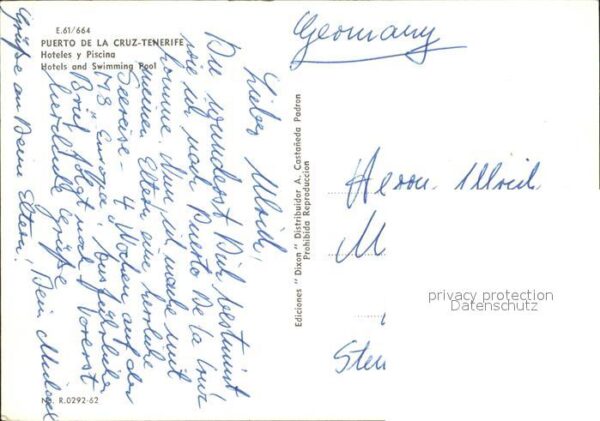 E.61/664
PUERTO DE LA CRUZ-TENERIFE
Hoteles y Piscina
Hotels and Swimming Pool
Lieber Ulrich!
Du wunderst Dich bestimmt
wie ich nach Puerto De la Cruz
komme. Nun, ich mache mit
meinen Eltern eine herrliche
Seereise - 4 Wochen auf der
MS Europa. Ausführlicher
Brief folgt noch. Vorerst
herzliche Grüße Dein Michael
Grüße an Deine Eltern!
Nº. R.0292-62
Ediciones "Dixon" Distribuidor A. Castañeda Padron
Prohibida Reproduccion
Germany
Herrn Ulrich
M
Sten
privacy protection
Datenschutz